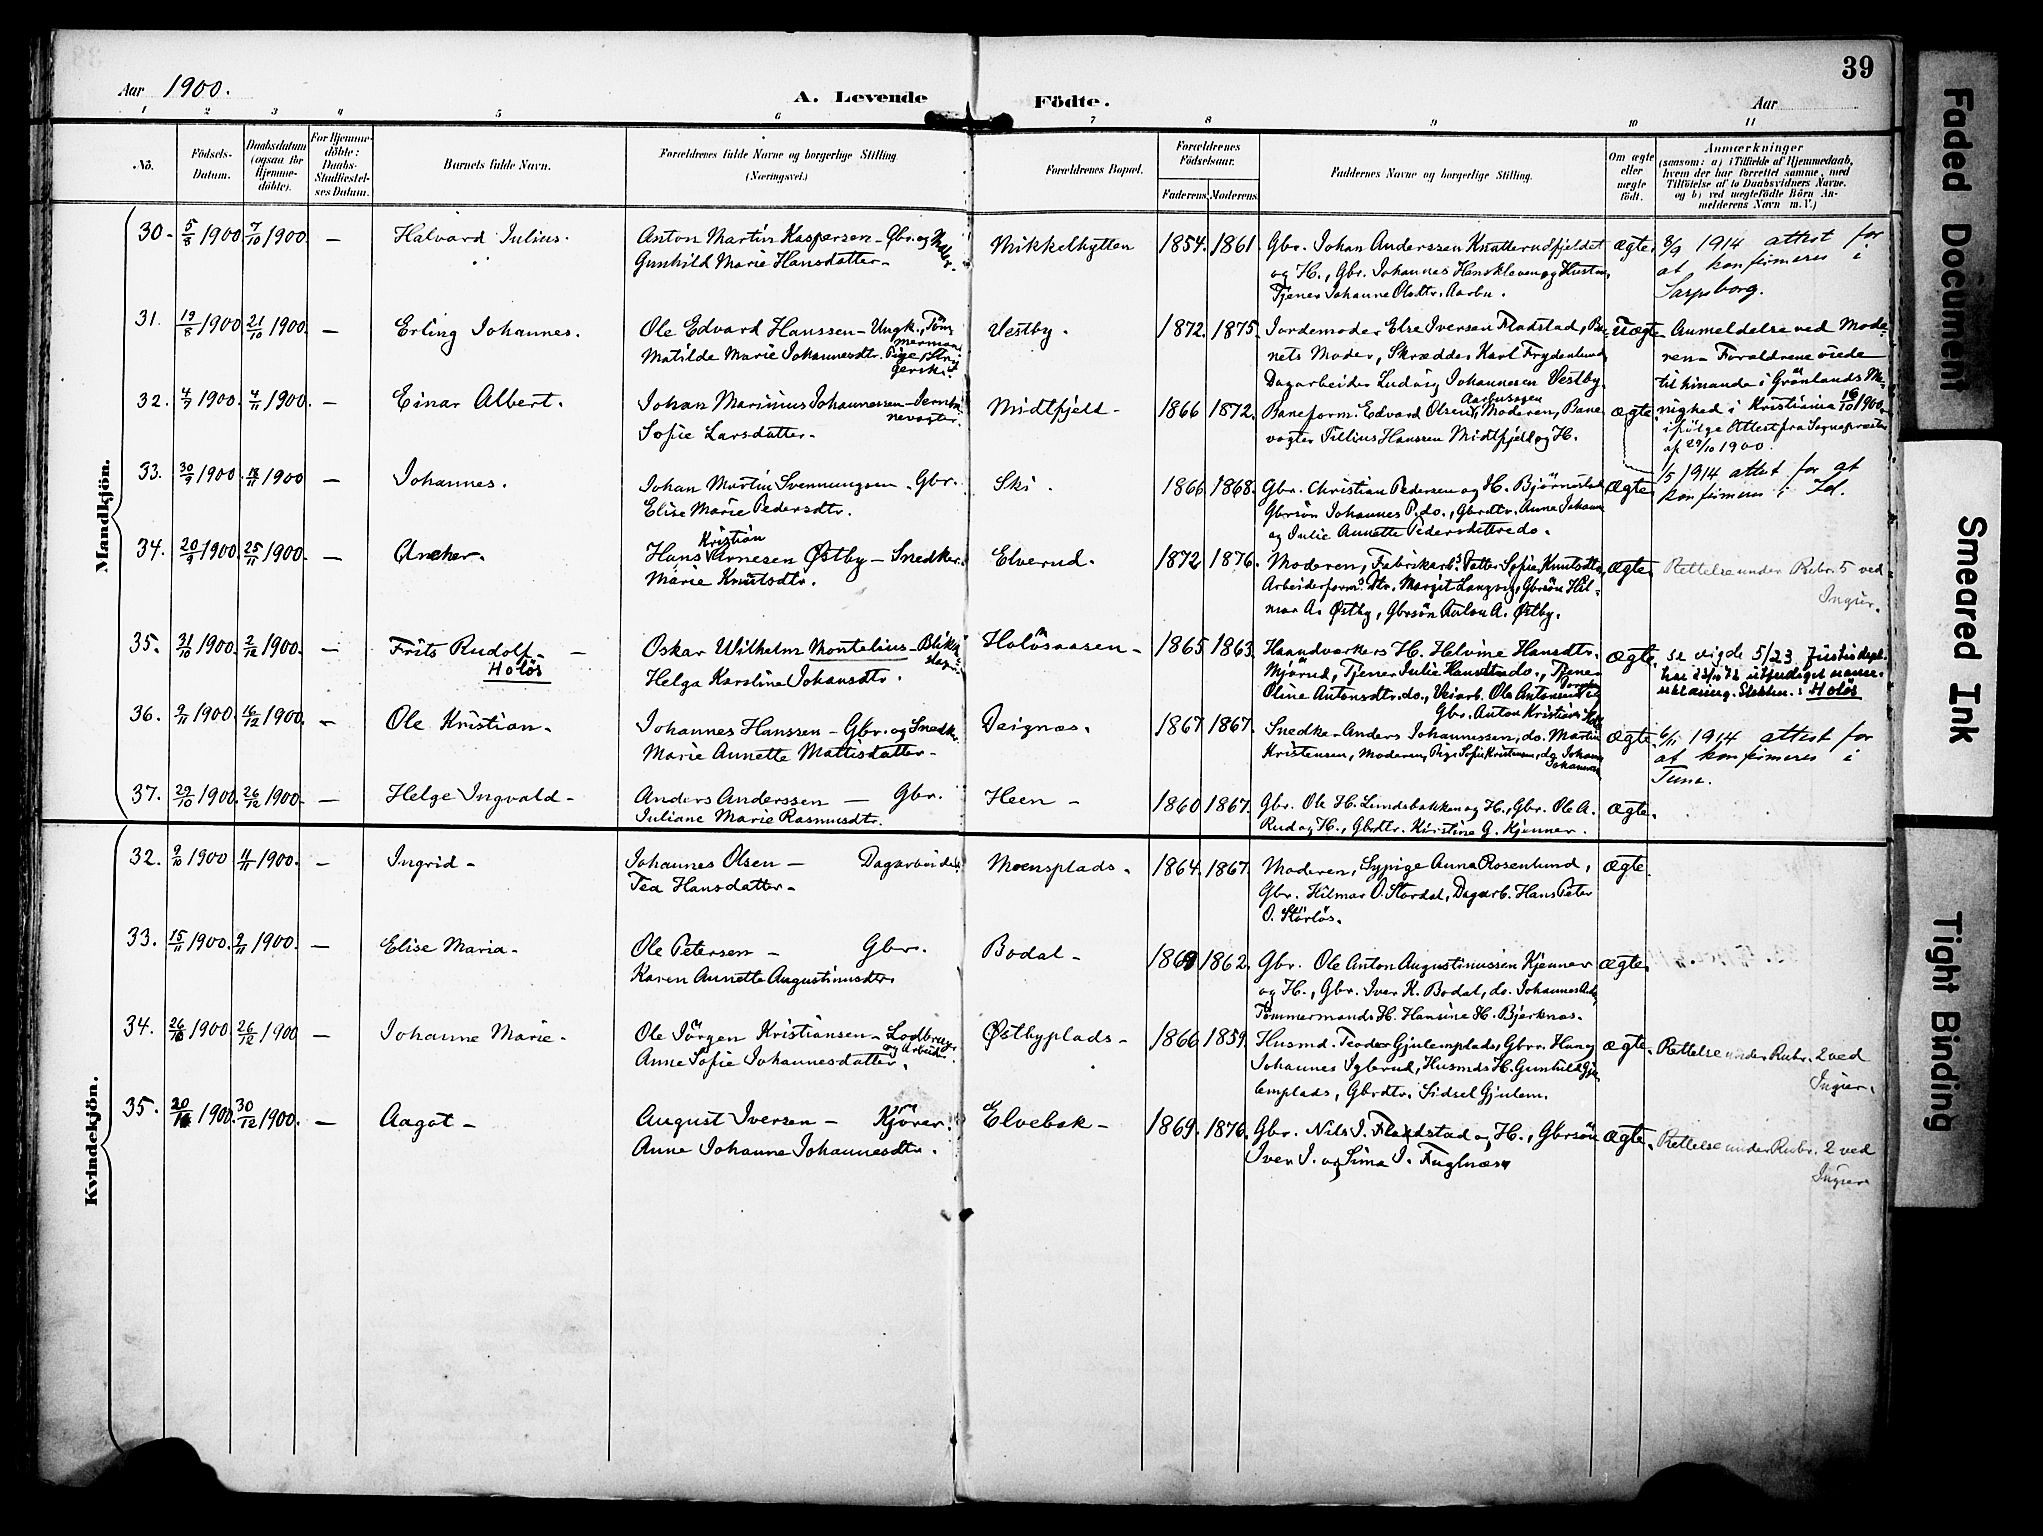 39
Aar 1900.
A. Levende Födte.
Aar
1 2 3 4 5 6 7 8 9 10 11
No.
Födsels-
Datum.
Daabsdatum
(ogsaa for
Hjemme-
döbte).
For Hjemme-
döbte:
Daabs-
Stadfæstel-
ses Datum.
Barnets fulde Navn.
Forældrenes fulde Navne og borgerlige Stilling
(Næringsvei.)
Forældrenes Bopæl.
Forældrenes
Födselsaar.
Faderens Moderens
Faddernes Navne og borgerlige Stilling.
Om ægte
eller
uægte
födt.
Anmærkninger
(saasom: a) i Tilfælde af Hjemmedaab,
hvem der har forrettet samme, med
Tilföielse af to Daabsvidners Navne.
og b) ved uægtefödte Börn An-
melderens Navn m. V.)
Mandkjön.
30. 5/8 1900 7/10 1900. — Halvard Julius.
Anton Martin Kaspersen - Gbr. og
Gunhild Marie Hansdatter -
Mikkelhytten 1854. 1861.
Gbr. Johan Anderssen Knatterudfjeldet
og H., Gbr. Johannes Henskleven og Hustru,
Tjener Johanne Olsdtr. Aarbu.
ægte.
8/9 1914 attest for
at konfirmeres i
Sarpsborg.
31. 19/8 1900 21/10 1900. — Erling Johannes.
Ole Edvard Hanssen - Ungk., Töm
mermand
Matilde Marie Johannesdtr. Pige,
Vestby. 1872. 1875.
Jordemoder Else Iversen Fladstad, Bar-
nets Moder, Skrædder Karl Frydenlund
Dagarbeider Ludvig Johannesen Vestby.
uægte
Anmeldelse ved Mode-
ren - Forældrene viede
til hinanden i Grönlands Me-
nighed i Kristiania 16/10 1900.
ifölge Attest fra Sognepræsten
af 29/10 1900.
32. 4/9 1900. 4/11 1900. — Einar Albert.
Johan Marinius Johannessen - Jernba
nevogter.
Sofie Larsdatter.
Midtfjeld - 1866 1872.
Baneform. Edvard Olsen Aarbusagen, Moderen, Bane
vogter Tillius Hanssen Midtfjeld og H.
ægte
33. 30/9 1900. 18/11 1900 — Johannes.
Johan Martin Svenningsen - Gbr.
Elise Marie Pedersdtr.
Ski. 1866 1868.
Gbr. Christian Pedersen og H. Björnstad
Gbrsön Johannes P. do., Gbrdtr. Anna Johanne
og Julie Annette Pedersdöttre do.
ægte
1/5 1914 attest for at
konfirmeres i
34. 20/9 1900. 25/11 1900. — Ancher.
Hans Kristian Arnesen Østby - Snedker.
Marie Knutsdtr.
Elverud. 1872 1876.
Moderen, Fabrikarb.s Datter Sofie Knutsdtr,
Arbeiderform.s Dtr. Margit Langvig, Gbrsön Hil-
mar A. Østby, Gbrsön Anton A. Østby.
ægte.
Rettelse under Rubr. 5 ved
Ingier.
35. 31/10 1900. 2/12 1900. — Frits Rudolf -
Holös
Oskar Wilhelm Montelius - Blikken
slager
Helga Karoline Johansdtr.
Holösaasen - 1865 1863.
Haandværkers H. Helvine Hansdtr.
Mjörud, Tjener Julie Hansdtr. do., Tjener
Oline Antonsdtr. do., Veiarb. Ole Antonsen
ægte.
se vigde 5/23. Justisdept.
har utferdiget navne-
erklæring. Slektsn.: Holös
36. 9/11 1900. 16/12 1900. — Ole Kristian.
Johannes Hanssen - Gbr. og Snedker
Marie Annette Mattisdatter -
Deignæs. 1867. 1867.
Gbr. Anton Kristian
Snedker Anders Johannessen, do. Martin
Kristensen, Moderen, Pige Sofie Kristensen, do. Johanne
Johannesen
ægte.
6/11 1914 attest for
at konfirmeres i
Tune.
37. 29/10 1900. 26/12 1900. — Helge Ingvald -
Anders Anderssen — Gbr.
Juliane Marie Rasmusdtr.
Heen - 1860 1867.
Gbr. Ole H. Lundebakken og H., Gbr. Ole A.
Rud og H., Gbrdtr. Kirstine G. Kjenner.
ægte.
Kvindekjön.
32. 9/10 1900 4/11 1900. — Ingrid -
Johannes Olsen — Dagarbeider.
Tea Hansdatter -
Moensplads. 1864. 1867.
Moderen, Sypige Anna Rosenlund,
Gbr. Hilmar O. Stordal, Dagarb. Hans Peter
O. Störlös.
ægte.
33. 15/11 1900. 9/11 1900. — Elise Maria -
Ole Petersen — Gbr.
Karen Annette Augustinusdtr.
Bodal - 1869 1862.
Gbr. Ole Anton Augustinussen Kjenner
og H., Gbr. Iver K. Bodal, do. Johannes
Tömmermands H. Hansine H. Bjerknæs.
ægte.
34. 26/10 1900 26/12 1900 — Johanne Marie -
Ole Jörgen Kristiansen -
Anne Sofie Johannesdatter.
Østbyplads - 1866 1859.
Husmd. Teodor Gjulemplads, Gbr. Hans
Johannes Igberud, Husmds H. Gunhild Gju
lemplads, Gbrdtr. Sidsel Gjulem.
ægte.
Rettelse under Rubr. 2 ved
Ingier.
35. 20/11 1900. 30/12 1900. — Aagot -
August Iversen - Kjörer.
Anne Johanne Johannesdtr.
Elvebak - 1869. 1876.
Gbr. Nils I. Fladstad og H., Gbrsön
Iver I. og Sina I. Fuglnæs
ægte.
Rettelse under Rubr. 2 ved
Ingier
Faded Document
Smeared Ink
Tight Binding